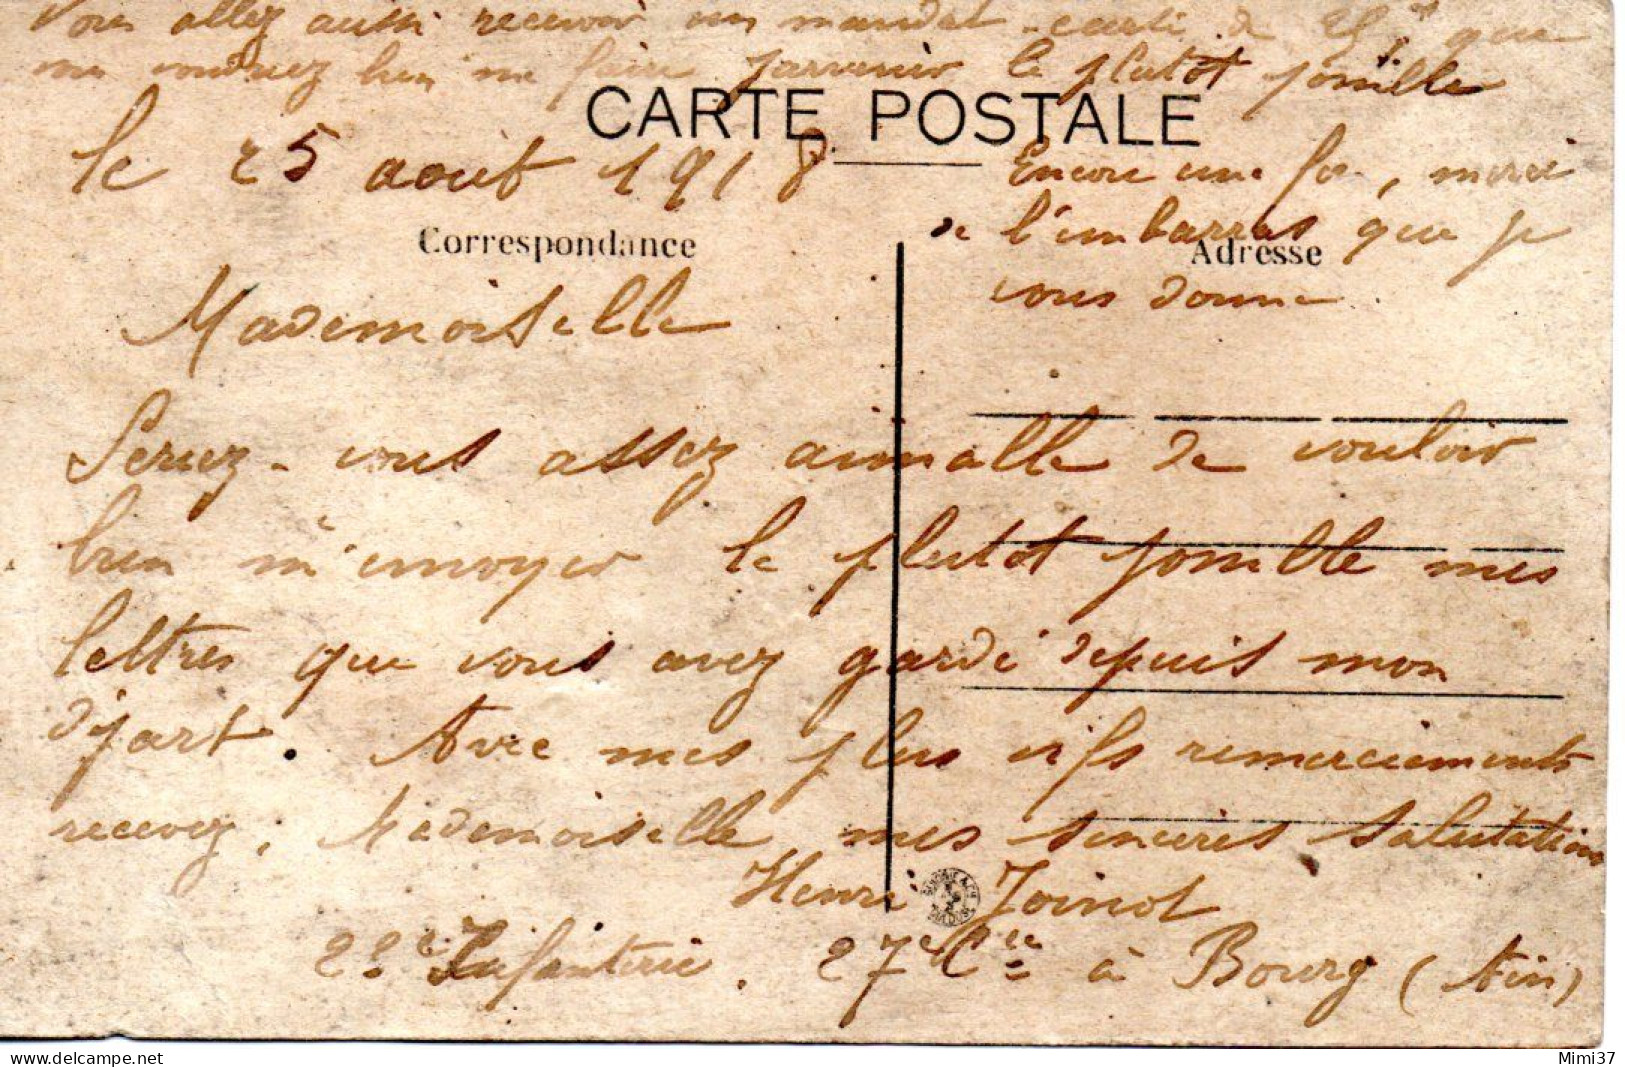 Vous allez aussi recevoir un mandat-carte de 25f que
vous voudrez bien me faire parvenir le plutôt possible
CARTE POSTALE
le 25 août 1918
Encore une fois, merci
de l'embarras que je
vous donne
Correspondance
Adresse
Mademoiselle
Seriez-vous assez aimable de vouloir
bien m'envoyer le plutôt possible mes
lettres que vous avez gardé depuis mon
départ. Avec mes plus vifs remerciements
recevez, Mademoiselle mes sincères salutations
Henri Joinot
22e Infanterie. 27e Cie à Bourg (Ain)
Mimi37
delcampe.net